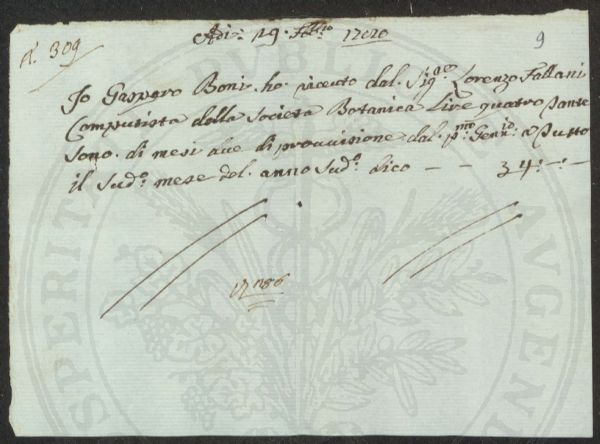 n.° 309
9
Adi: 29 Febbro
Io Gasparo Boni. ho riceuto dal. Sig.re Lorenzo Fallani
Computista della Società Botanica Lire quatro
sono. di mesi due di prouuisione dal. p.mo Genr.o a tutto
il Sud.o mese del. anno Sud.o dico — — 34:-:-
PERITA PUBLI AUGEND